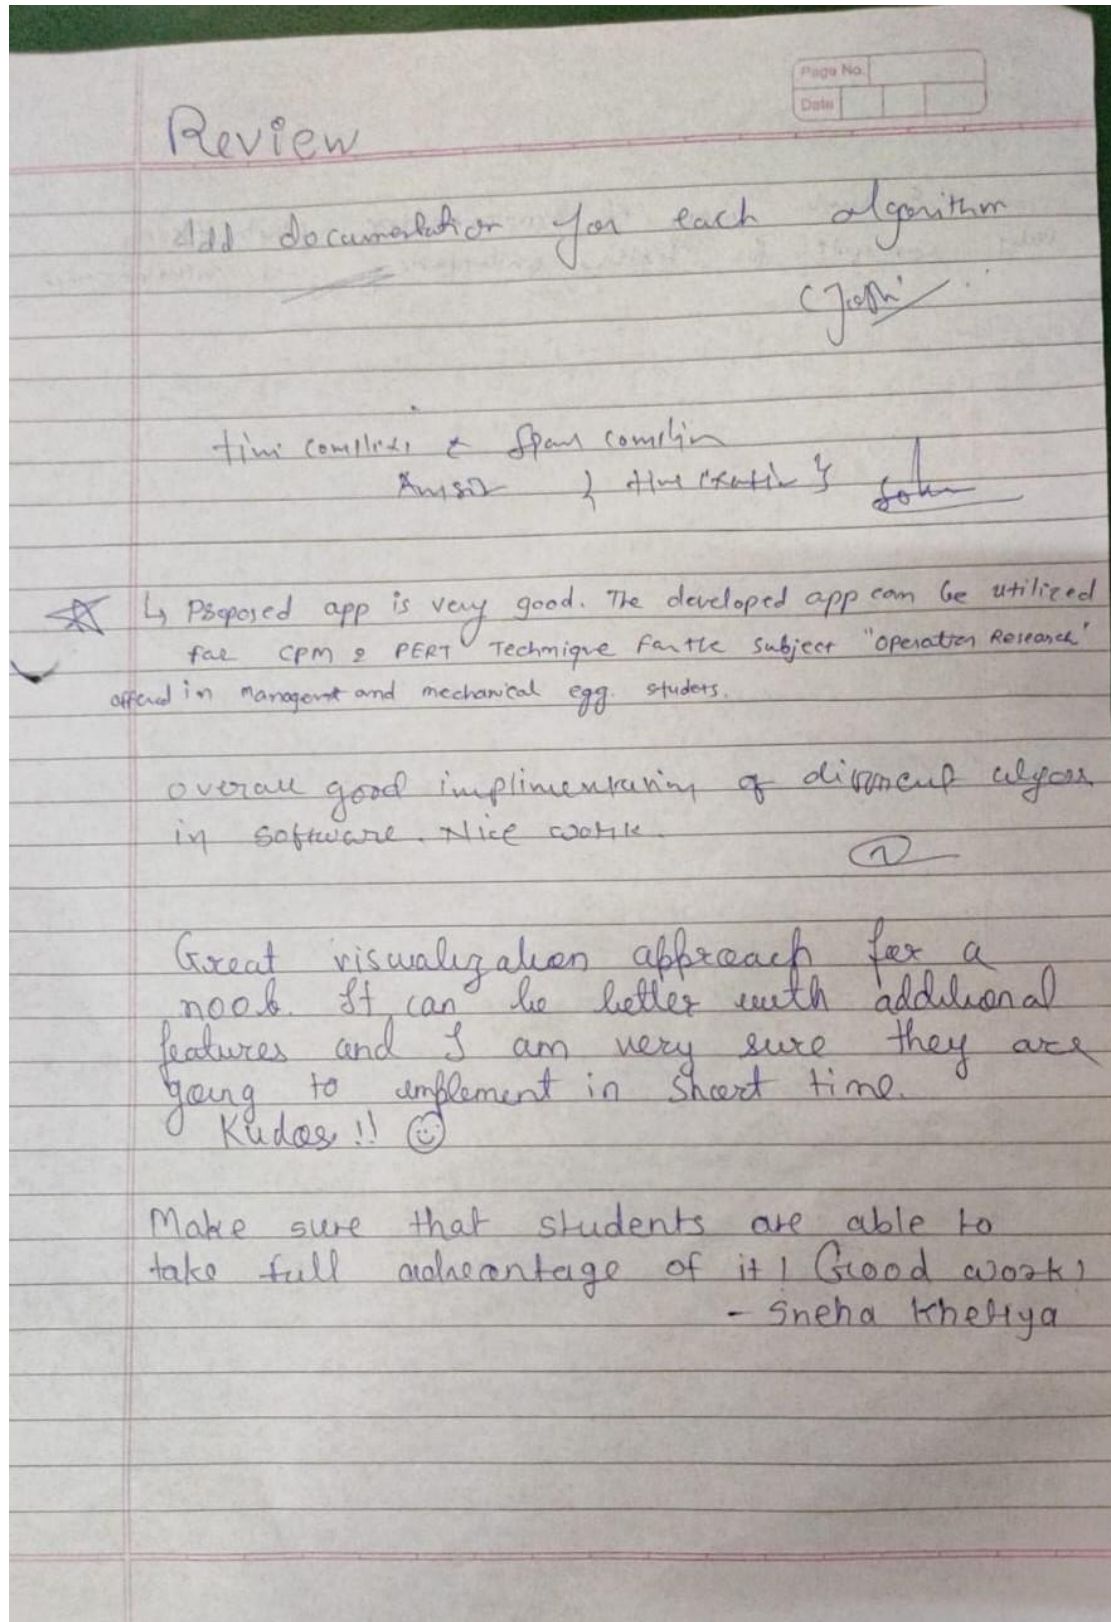 Page No.
Date
Review
Add documentation for each algorithm
time & Space
time
↳ Proposed app is very good. The developed app can be utilized
for CPM & PERT Technique for the subject "Operation Research"
offered in and mechanical egg. studets.
overall good of algos
in software. Nice work.
Great visualization approach for a
noob. It can be better with additional
features and I am very sure they are
going to implement in short time.
Kudos!! ☺
Make sure that students are able to
take full of it! Good work!
- Sneha